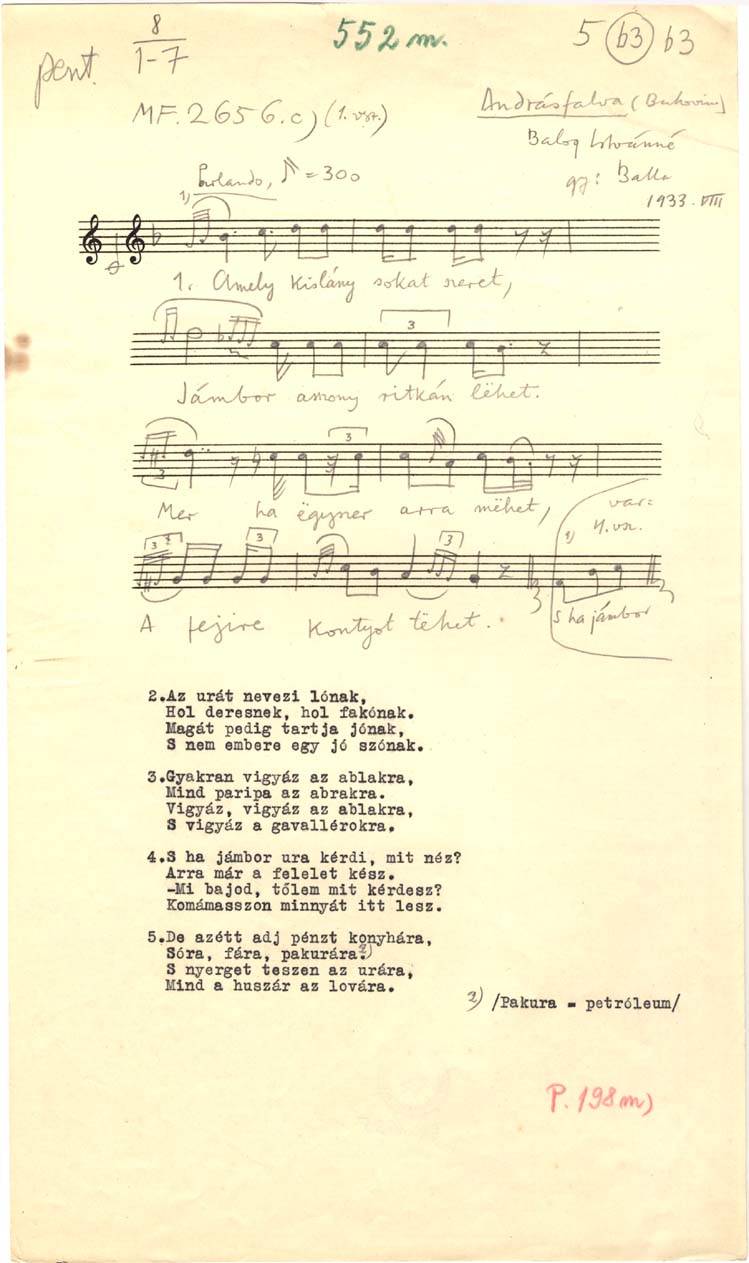 8
1-7
552 m.
5 b3 b3
pent.
MF. 2656. c) (1. vsz.)
Andrásfalva (Bukovina)
Balog Istvánné
gy: Balla
1933. VIII
Parlando, = 300
1)
1. Amely kislány sokat szeret,
3
Jámbor asszony ritkán lëhet.
3
3
Mer ha ëgyszer arra mëhet,
var:
4. vsz.
1)
3
3
3
A fejire kontyot tëhet.
S ha jámbor
2.Az urát nevezi lónak,
Hol deresnek, hol fakónak.
Magát pedig tartja jónak,
S nem embere egy jó szónak.
3.Gyakran vigyáz az ablakra,
Mind paripa az abrakra.
Vigyáz, vigyáz az ablakra,
S vigyáz a gavallérokra.
4.S ha jámbor ura kérdi, mit néz?
Arra már a felelet kész.
-Mi bajod, tőlem mit kérdesz?
Komámasszon minnyát itt lesz.
5.De azétt adj pénzt konyhára,
Sóra, fára, pakurára.2)
S nyerget teszen az urára,
Mind a huszár az lovára.
2) /Pakura = petróleum/
P. 198m)